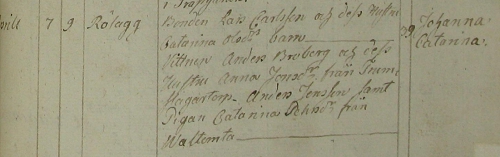 April 7 9 Rölagg Bonden Lars Carlsson och dess Hustru 29 Johanna
Catarina Olofsdr barn Catarina.
Vittnen Anders Broberg och dess
Hustru Anna Jonsdr. från
Anders Jonsson samt
Pigan Catarina från
Waltemta